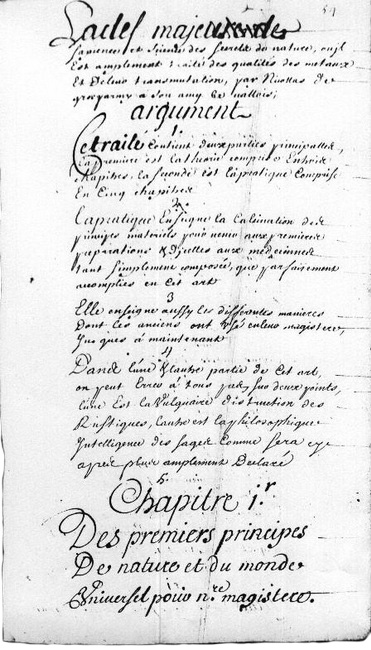 54
La clef majeur de
sapience et Science des secrets de nature, ou il
Est amplement traité des qualités des metaux
Et de leur transmutation, par Nicollas de
a son amy de vallois,
argument
1.
Ce traité contient deux parties principalles,
La premiere est la theorie comprise En trois
chapitres. La seconde est la pratique comprise
En Cinq chapitres
2.
La pratique Enseigne la Calcination des
principes materiels pour venir aux premieres
preparations & d'jcelles aux medecinnes
tant simplement composés, que parfaitement
acomplies en cet art
3
Elle enseigne aussy les differentes manieres
Dont les anciens ont usé en leur magistere,
Jusques a maintenant
4
Dans l'une & l'autre partie de cet art,
on peut Errer a tous pas, sur deux points,
l'une Est la Vulguaire distruction des
Rustiques, l'autre est la philosophique
Intelligence des sages Comme sera cy
apres plus amplement Declaré
5.
Chapitre 1.r
Des premiers principes
De nature et du monde
Universel pour n.re magistere.